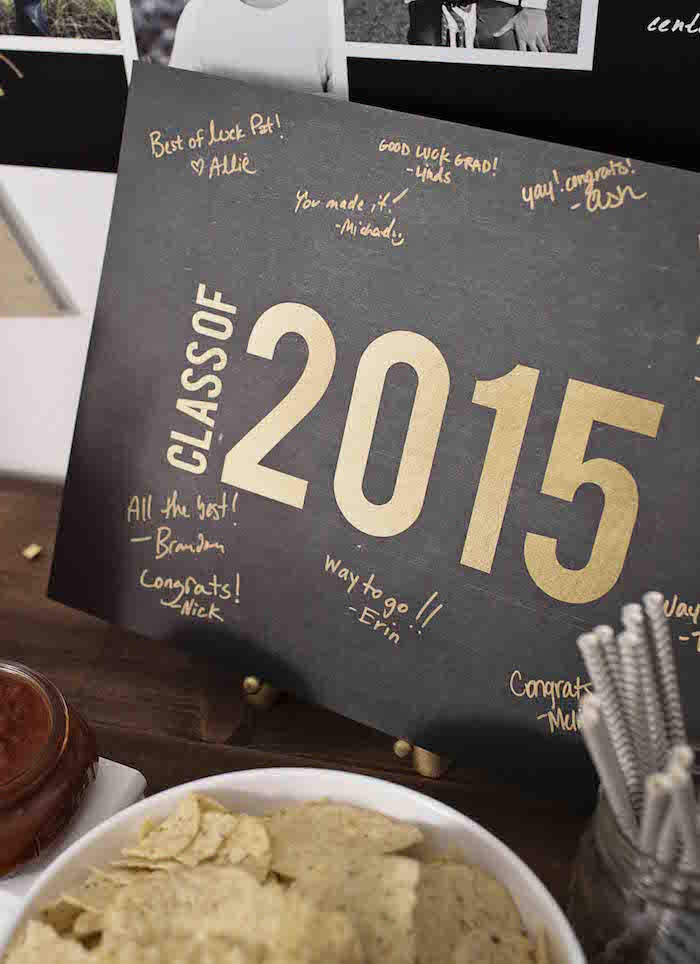 Best of luck Pat!
♡ Allie
GOOD LUCK GRAD!
-Linds
You made it!
-Michael
yay! congrats!
-Ash
CLASS OF
2015
All the best!
-Brandon
Congrats!
-Nick
Way to go!!
-Erin
Way
Congrats